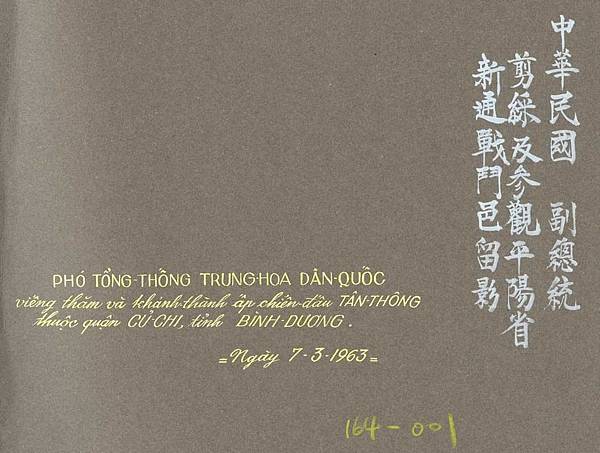 中華民國 副總統
剪綵及參觀平陽省
新通戰鬥邑留影
PHÓ TỔNG-THỐNG TRUNG-HOA DÂN-QUỐC
viếng thăm và khánh-thành ấp chiến-đấu TÂN-THÔNG
thuộc quận CỦ-CHI, tỉnh BÌNH-DƯƠNG.
= Ngày 7-3-1963 =
164-001